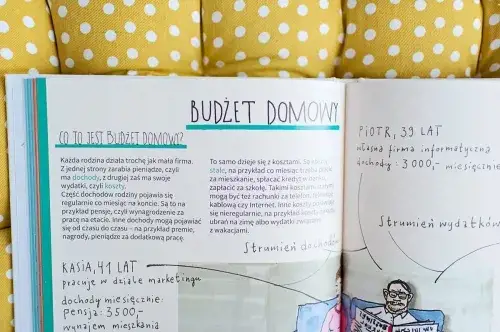 BUDŻET DOMOWY
CO TO JEST BUDŻET DOMOWY?
Każda rodzina działa trochę jak mała firma.
Z jednej strony zarabia pieniądze, czyli
ma dochody, z drugiej zaś ma swoje
wydatki, czyli koszty.
Część dochodów rodziny pojawia się
regularnie co miesiąc na koncie. Są to na
przykład pensje, czyli wynagrodzenie za
pracę na etacie. Inne dochody mogą pojawiać
się od czasu do czasu – na przykład premie,
nagrody, pieniądze za dodatkową pracę.
To samo dzieje się z kosztami. Są koszty
stałe, na przykład co miesiąc trzeba płacić
za mieszkanie, spłacać kredyt w banku,
zapłacić za szkołę. Takimi kosztami stałymi
mogą być też rachunki za telefon, telewizję
kablową czy Internet. Inne koszty pojawiają
się nieregularnie, na przykład zakup
ubrań na zimę albo wydatki związane
z wakacjami.
Strumień dochodów
KASIA, 41 LAT
pracuje w dziale marketingu
dochody miesięcznie:
pensja: 3500,-
wynajem mieszkania
PIOTR, 39 LAT
własna firma informatyczna
dochody: 3000,- miesięcznie
Strumień wydatków